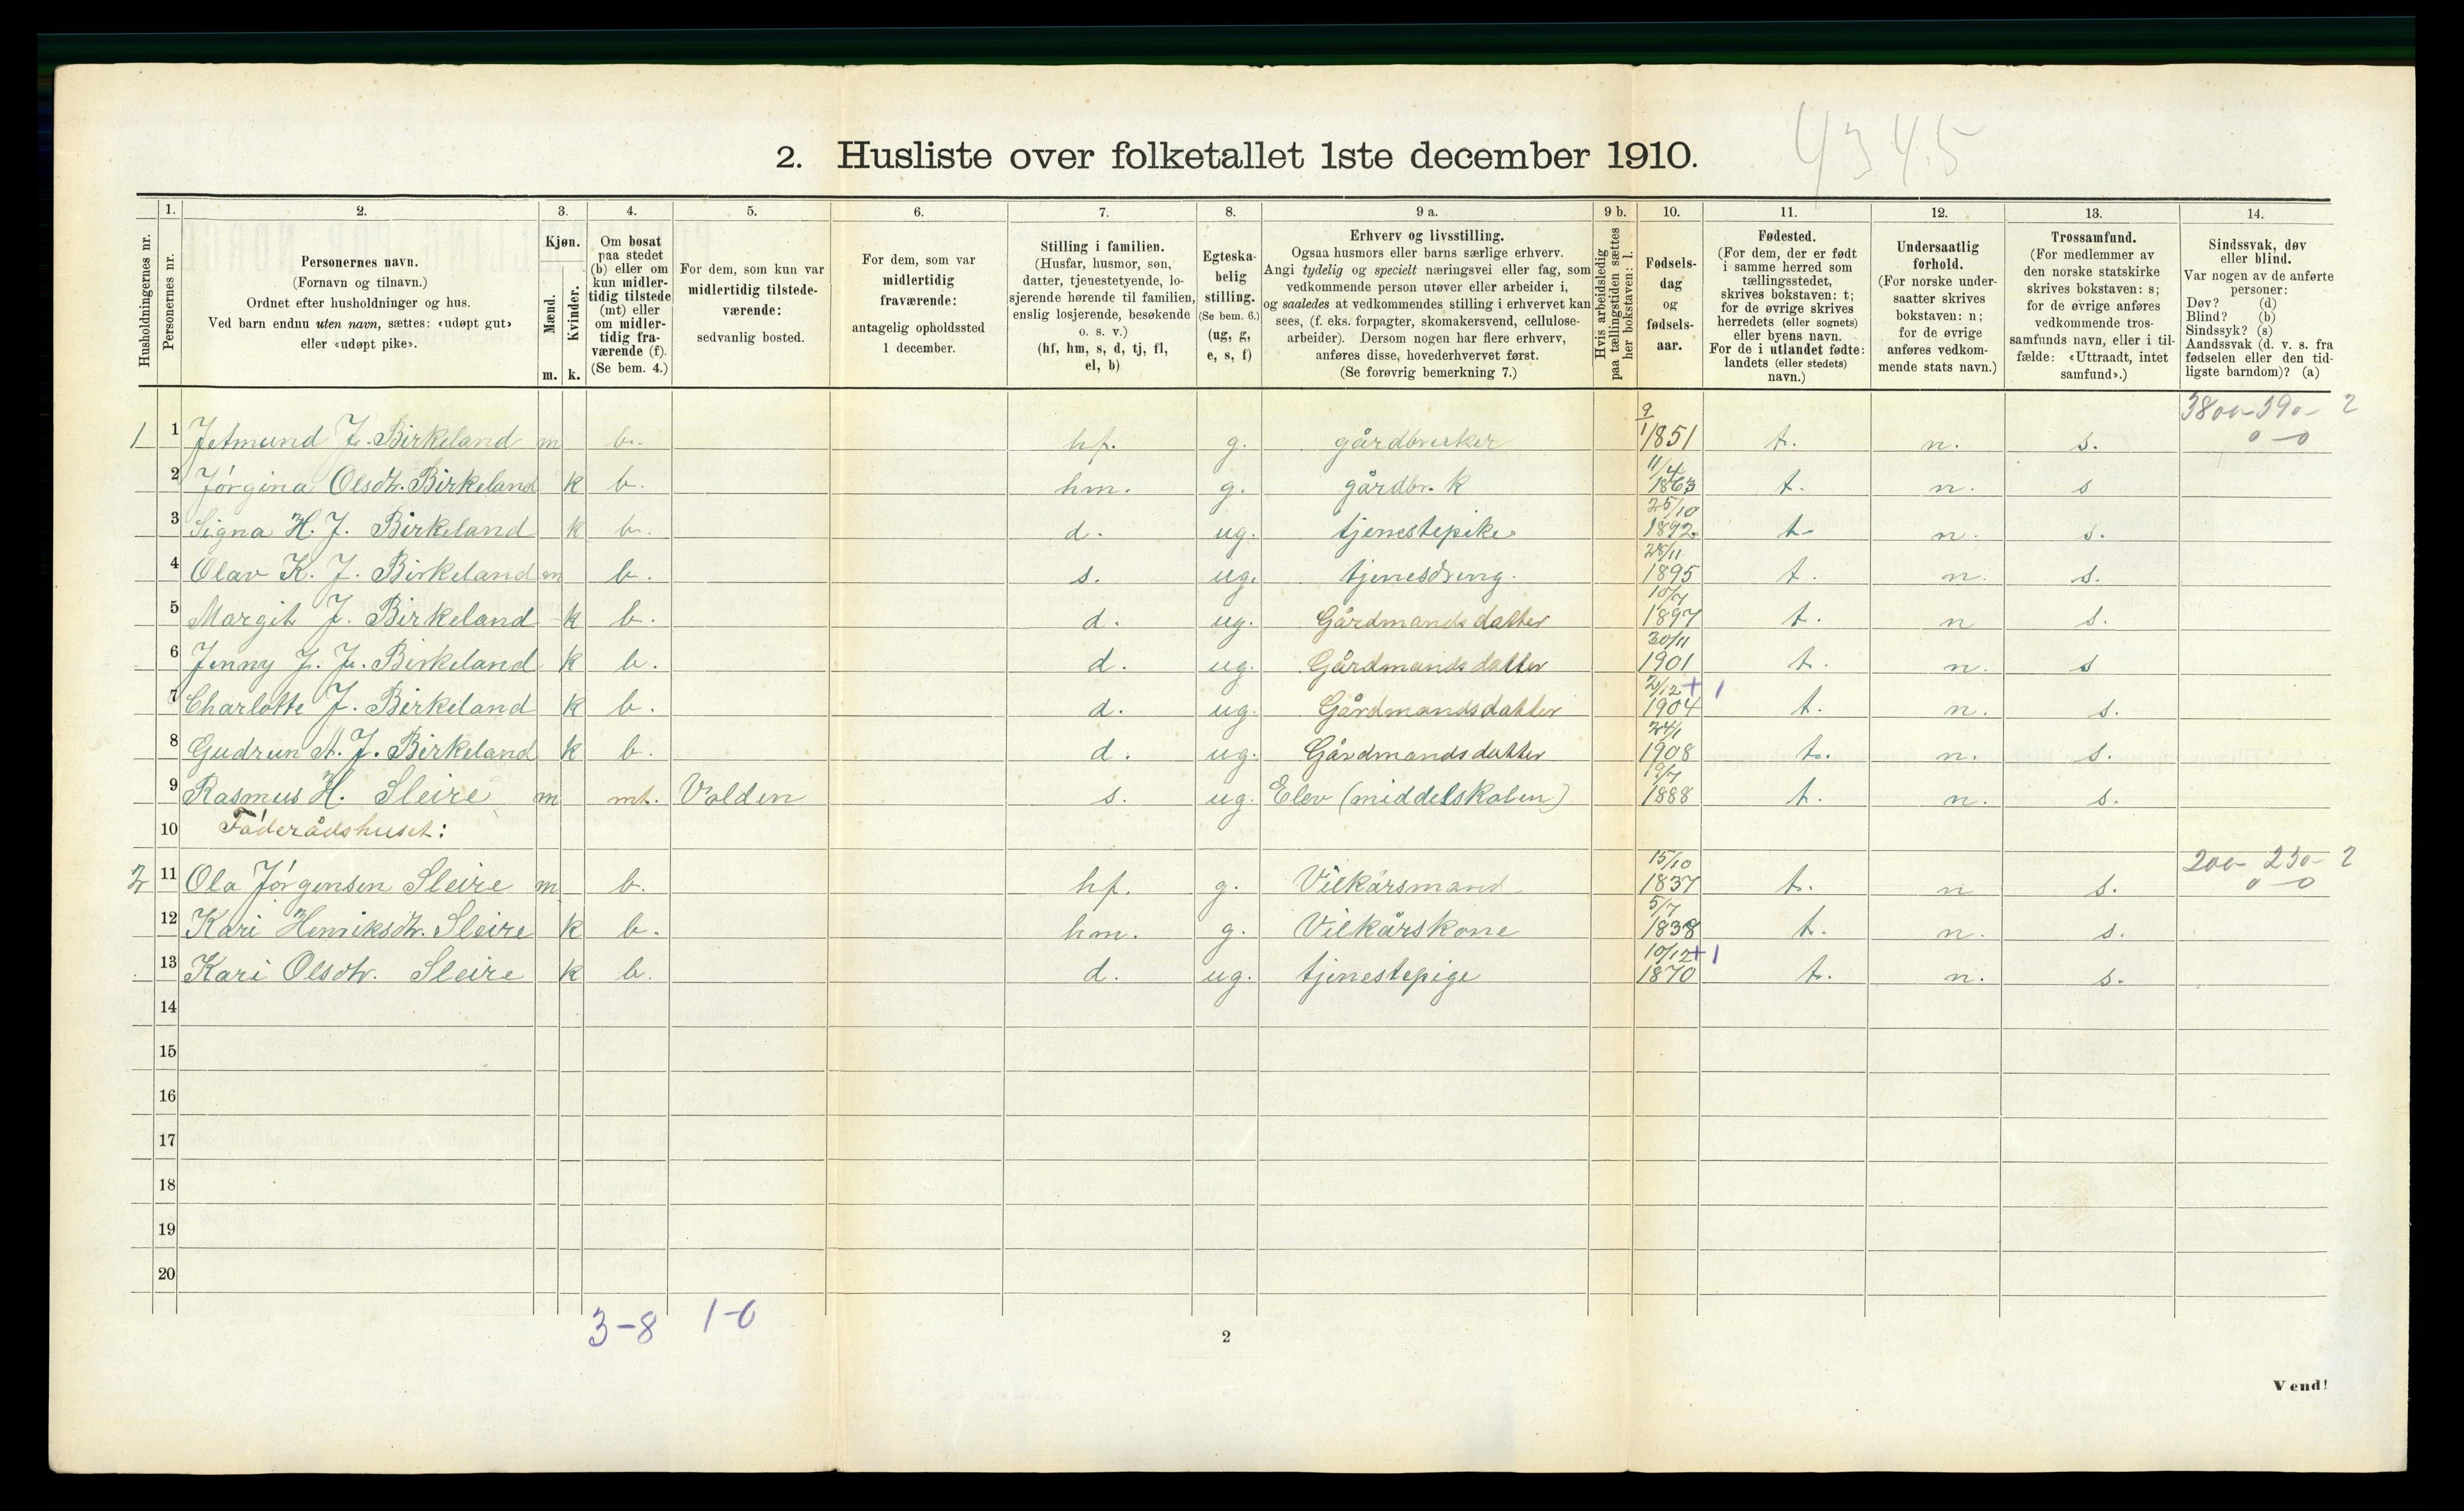 4345
2. Husliste over folketallet 1ste december 1910.
Husholdningernes nr.
1. Personernes nr.
2. Personernes navn.
(Fornavn og tilnavn.)
Ordnet efter husholdninger og hus.
Ved barn endnu uten navn, sættes: «udøpt gut»
eller «udøpt pike».
3. Kjøn.
Mænd. Kvinder.
m. k.
4. Om bosat
paa stedet
(b) eller om
kun midler-
tidig tilstede
(mt) eller
om midler-
tidig fra-
værende (f).
(Se bem. 4.)
5. For dem, som kun var
midlertidig tilstede-
værende:
sedvanlig bosted.
6. For dem, som var
midlertidig
fraværende:
antagelig opholdssted
1 december.
7. Stilling i familien.
(Husfar, husmor, søn,
datter, tjenestetyende, lo-
sjerende hørende til familien,
enslig losjerende, besøkende
o. s. v.)
(hf, hm, s, d, tj, fl,
el, b)
8. Egteska-
belig
stilling.
(Se bem. 6.)
(ug, g,
e, s, f)
9 a. Erhverv og livsstilling.
Ogsaa husmors eller barns særlige erhverv.
Angi tydelig og specielt næringsvei eller fag, som
vedkommende person utøver eller arbeider i,
og saaledes at vedkommendes stilling i erhvervet kan
sees, (f. eks. forpagter, skomakersvend, cellulose-
arbeider). Dersom nogen har flere erhverv,
anføres disse, hovederhvervet først.
(Se forøvrig bemerkning 7.)
9 b. Hvis arbeidsledig
paa tællingstiden sættes
her bokstaven: l.
10. Fødsels-
dag
og
fødsels-
aar.
11. Fødested.
(For dem, der er født
i samme herred som
tællingsstedet,
skrives bokstaven: t;
for de øvrige skrives
herredets (eller sognets)
eller byens navn.
For de i utlandet fødte:
landets (eller stedets)
navn.)
12. Undersaatlig
forhold.
(For norske under-
saatter skrives
bokstaven: n;
for de øvrige
anføres vedkom-
mende stats navn.)
13. Trossamfund.
(For medlemmer av
den norske statskirke
skrives bokstaven: s;
for de øvrige anføres
vedkommende tros-
samfunds navn, eller i til-
fælde: «Uttraadt, intet
samfund».)
14. Sindssvak, døv
eller blind.
Var nogen av de anførte
personer:
Døv? (d)
Blind? (b)
Sindssyk? (s)
Aandssvak (d. v. s. fra
fødselen eller den tid-
ligste barndom)? (a)
1 1 Jetmund J. Birkeland m b. hf. g. gårdbruker 9/1 1851 t. n. s. 3800-390- 2 0-0
2 Jørgina Olsdtr. Birkeland k b. hm. g. gårdbr. k 11/4 1863 t. n. s
3 Signa H. J. Birkeland k b. d. ug. tjenestepike 25/10 1892 t n. s.
4 Olav K. J. Birkeland m b. s. ug. tjenesdreng. 28/11 1895 t. n. s.
5 Margit J. Birkeland k b. d. ug. Gårdmandsdatter 10/7 1897 t. n s.
6 Jenny J. J. Birkeland k b. d. ug. Gårdmandsdatter 30/11 1901 t. n. s
7 Charlotte J. Birkeland k b. d. ug. Gårdmandsdatter 2/12 + 1 1904 t. n. s.
8 Gudrun A. J. Birkeland k b. d. ug. Gårdmandsdatter 24/1 1908 t. n. s.
9 Rasmus H. Sleire m mt. Valden s. ug. Elev (middelskolen) 19/7 1888 t. n. s.
10 Föderådshuset:
2 11 Ola Jørgensen Sleire m b. hf. g. Vilkårsmand 15/10 1837 t. n s. 200- 250- 2 0-0
12 Kari Henriksdtr. Sleire k b. hm. g. Vilkårskone 5/7 1838 t. n. s.
13 Kari Olsdtr. Sleire k b. d. ug. tjenestepige 10/12 + 1 1870 t. n. s.
14
15
16
17
18
19
20
3-8 1-0
2
Vend!